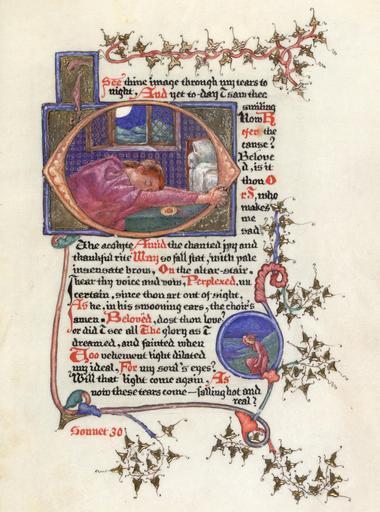 I See thine image through my tears to
night, And yet to-day I saw thee
smiling
How R
efer the
cause?
Belove
d, is it
thou O
r I, who
makes
me
sad?
The acolyte Amid the chanted joy and
thankful rite May so fall flat, with pale
insensate brow, On the altar-stair.
I hear thy voice and vow, Perplexed, un
certain, since thou art out of sight,
As he, in his swooning ears, the choir's
amen. Beloved, dost thou love?
or did I see all The glory as I
dreamed, and fainted when
Too vehement light dilated
my ideal, For my soul's eyes?
Will that light come again, As
now these tears come—falling hot and
real?
Sonnet 30